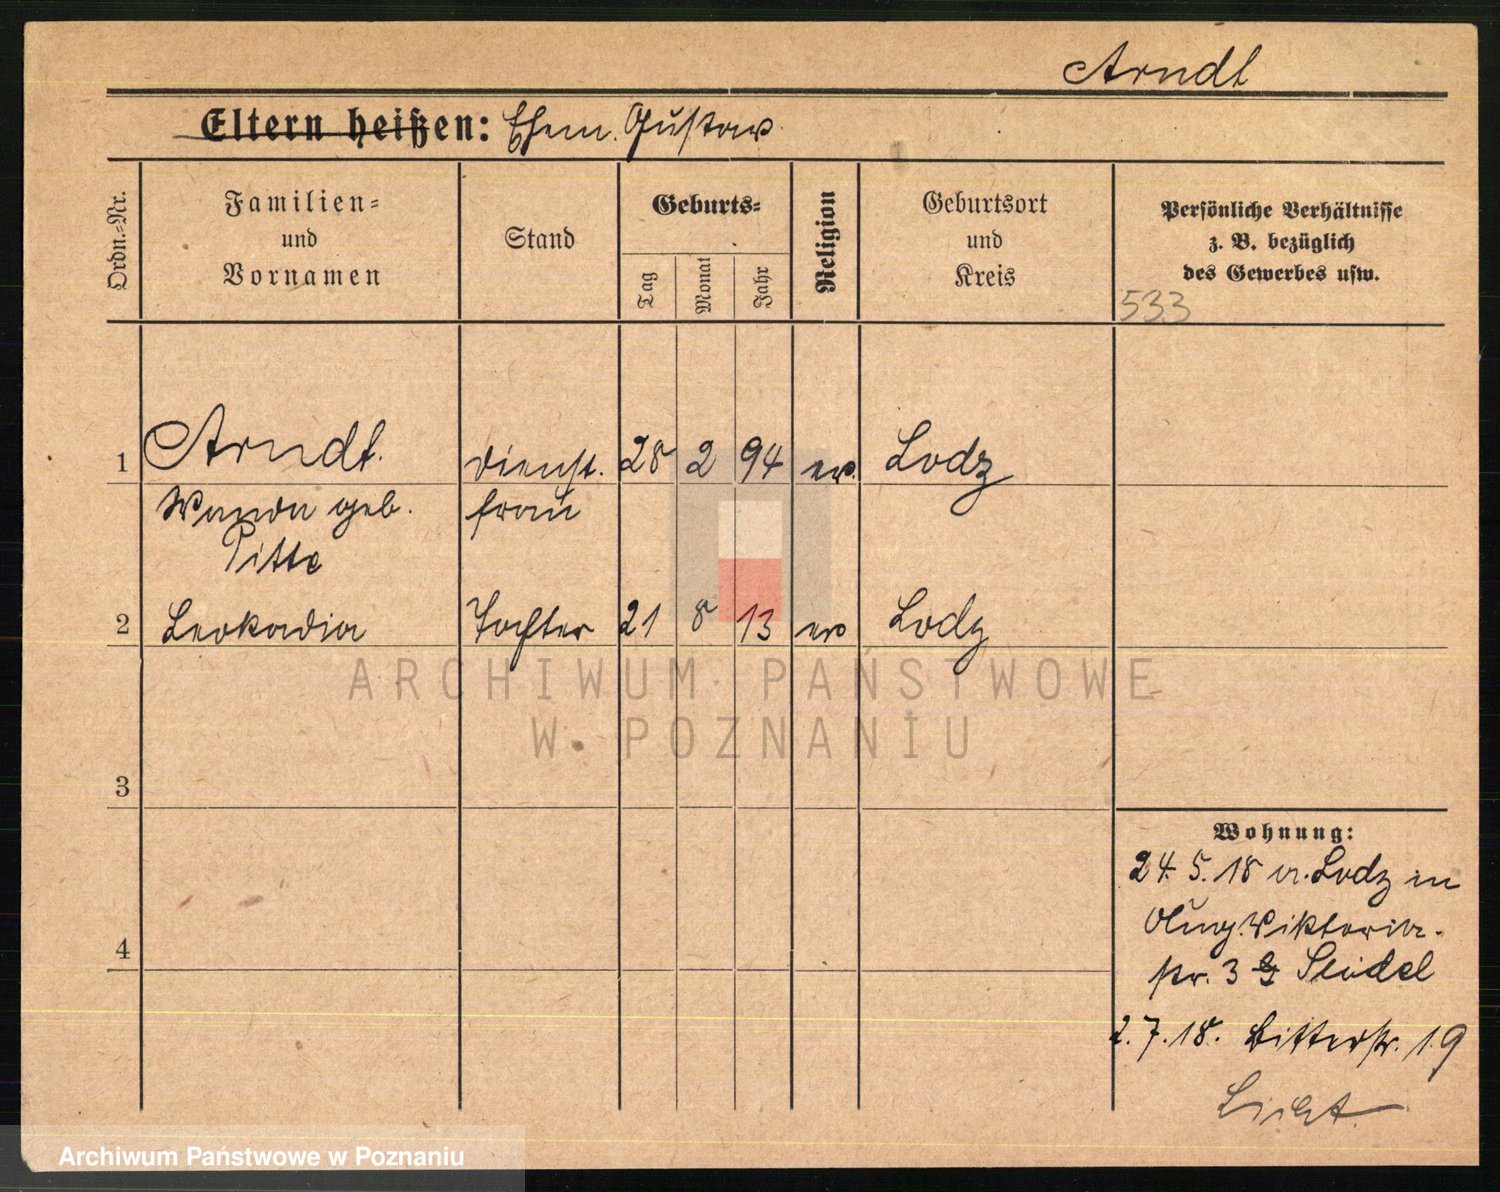 Arndt
Eltern heißen: Ehem. Gustav
Ordn.-Nr.
Familien-
und
Vornamen
Stand
Geburts-
Tag
Monat
Jahr
Religion
Geburtsort
und
Kreis
Persönliche Verhältnisse
z. B. bezüglich
des Gewerbes usw.
533
1 Arndt. dienst. 28 2 94 ev. Lodz
Wanda geb. frau
Pitte
2 Leokadia Tochter 21 8 13 ev Lodz
ARCHIWUM PAŃSTWOWE
W POZNANIU
3
4
Wohnung:
24. 5. 18 v. Lodz in
Viktoria-
str. 3 Seidel
2. 7. 18. Bitterstr. 19
Licht.
Archiwum Państwowe w Poznaniu